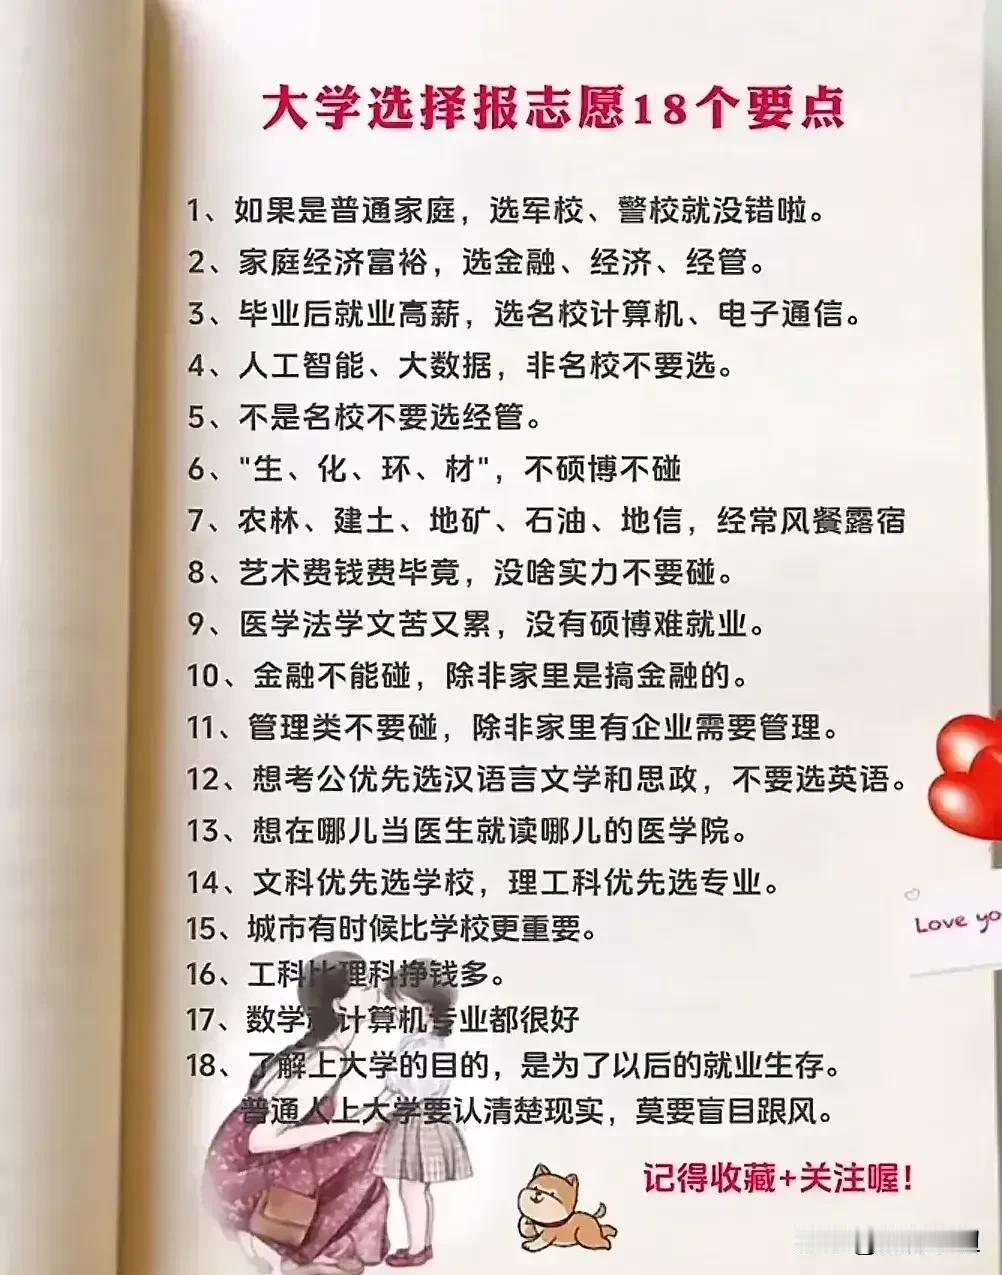 大学选择报志愿18个要点
1、如果是普通家庭，选军校、警校就没错啦。
2、家庭经济富裕，选金融、经济、经管。
3、毕业后就业高薪，选名校计算机、电子通信。
4、人工智能、大数据，非名校不要选。
5、不是名校不要选经管。
6、"生、化、环、材"，不硕博不碰
7、农林、建土、地矿、石油、地信，经常风餐露宿
8、艺术费钱费毕竟，没啥实力不要碰。
9、医学法学文苦又累，没有硕博难就业。
10、金融不能碰，除非家里是搞金融的。
11、管理类不要碰，除非家里有企业需要管理。
12、想考公优先选汉语言文学和思政，不要选英语。
13、想在哪儿当医生就读哪儿的医学院。
14、文科优先选学校，理工科优先选专业。
15、城市有时候比学校更重要。
16、工科比理科挣钱多。
17、数学和计算机专业都很好
18、了解上大学的目的，是为了以后的就业生存。
普通人上大学要认清楚现实，莫要盲目跟风。
记得收藏+关注喔！
Love yo